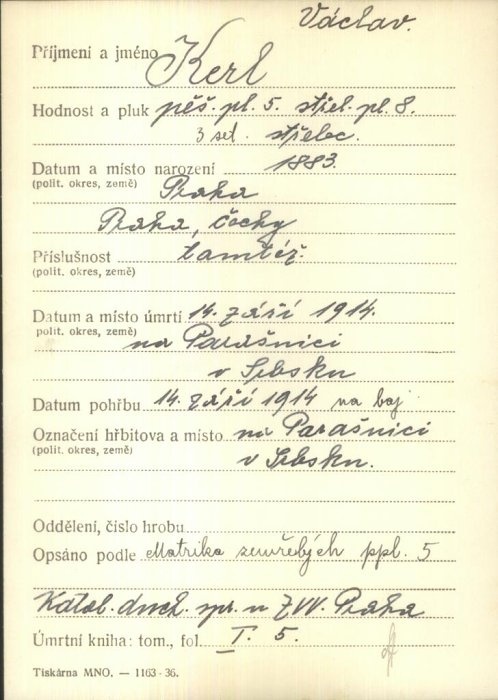 Václav.
Příjmení a jméno Kerl
Hodnost a pluk pěš. pl. 5. střel. pl. 8.
3 set. střelec.
Datum a místo narození 1883.
(polit. okres, země) Praha
Praha, Čechy
Příslušnost tamtéž.
(polit. okres, země)
Datum a místo úmrtí 14. září 1914.
(polit. okres, země) na Parašnici
v Srbsku
Datum pohřbu 14. září 1914 na boj
Označení hřbitova a místo na Parašnici
(polit. okres, země) v Srbsku.
Oddělení, číslo hrobu
Opsáno podle Matrika zemřelých ppl. 5
Katol. duch. spr. u ZVV. Praha
Úmrtní kniha: tom., fol. I. 5.
Tiskárna MNO. — 1163-36.